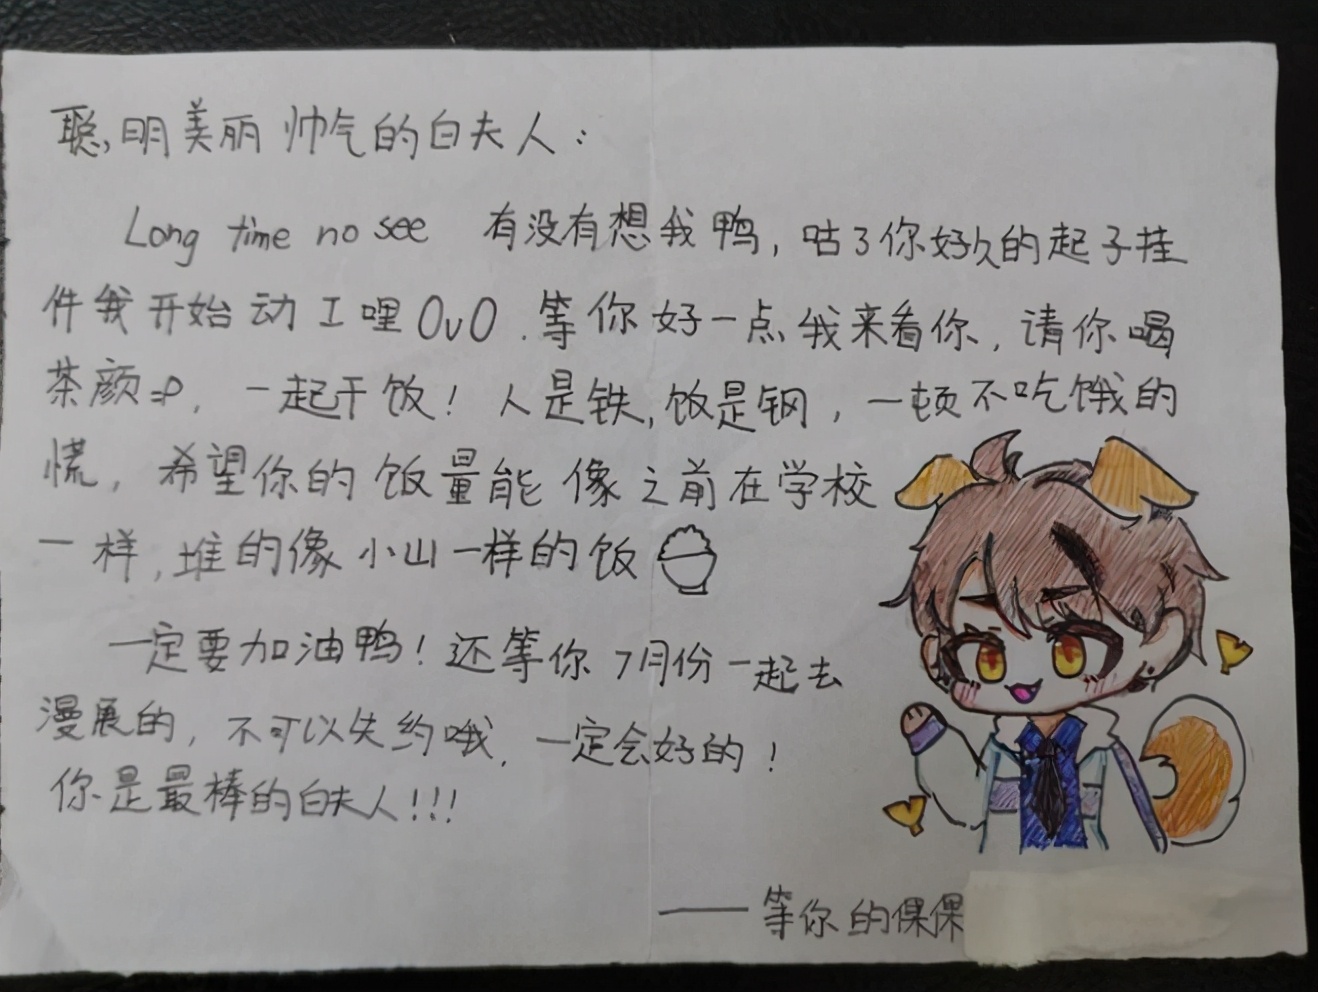 聪明美丽帅气的白夫人：
Long time no see 有没有想我鸭，咕了你好久的起子挂
件我开始动工哩OvO.等你好一点我来看你，请你喝
茶颜=P，一起干饭！人是铁，饭是钢，一顿不吃饿的
慌，希望你的饭量能像之前在学校
一样，堆的像小山一样的饭
一定要加油鸭！还等你7月份一起去
漫展的，不可以失约哦，一定会好的！
你是最棒的白夫人！！！
——等你的倮倮